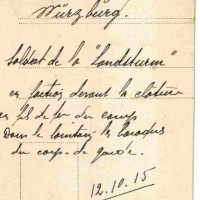 Würzburg.
Soldat de la "Landsturm"
en faction devant la clôture
en fil de fer du camp
Dans le lointain les baraques
du corps de garde.
12.10.15